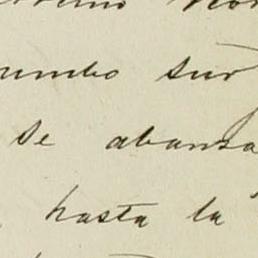 rumbo sur
se abanza
hasta la